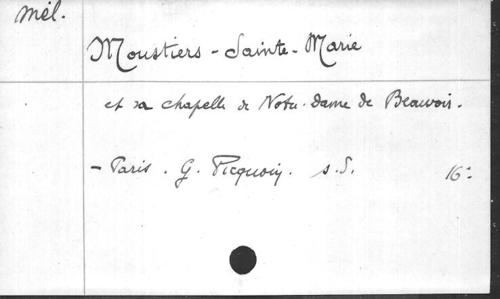 Mél.
Moustiers-Sainte-Marie
et sa chapelle de Notre-Dame de Beauvoir.
- Paris. G. Picquoin. s.d.
16°